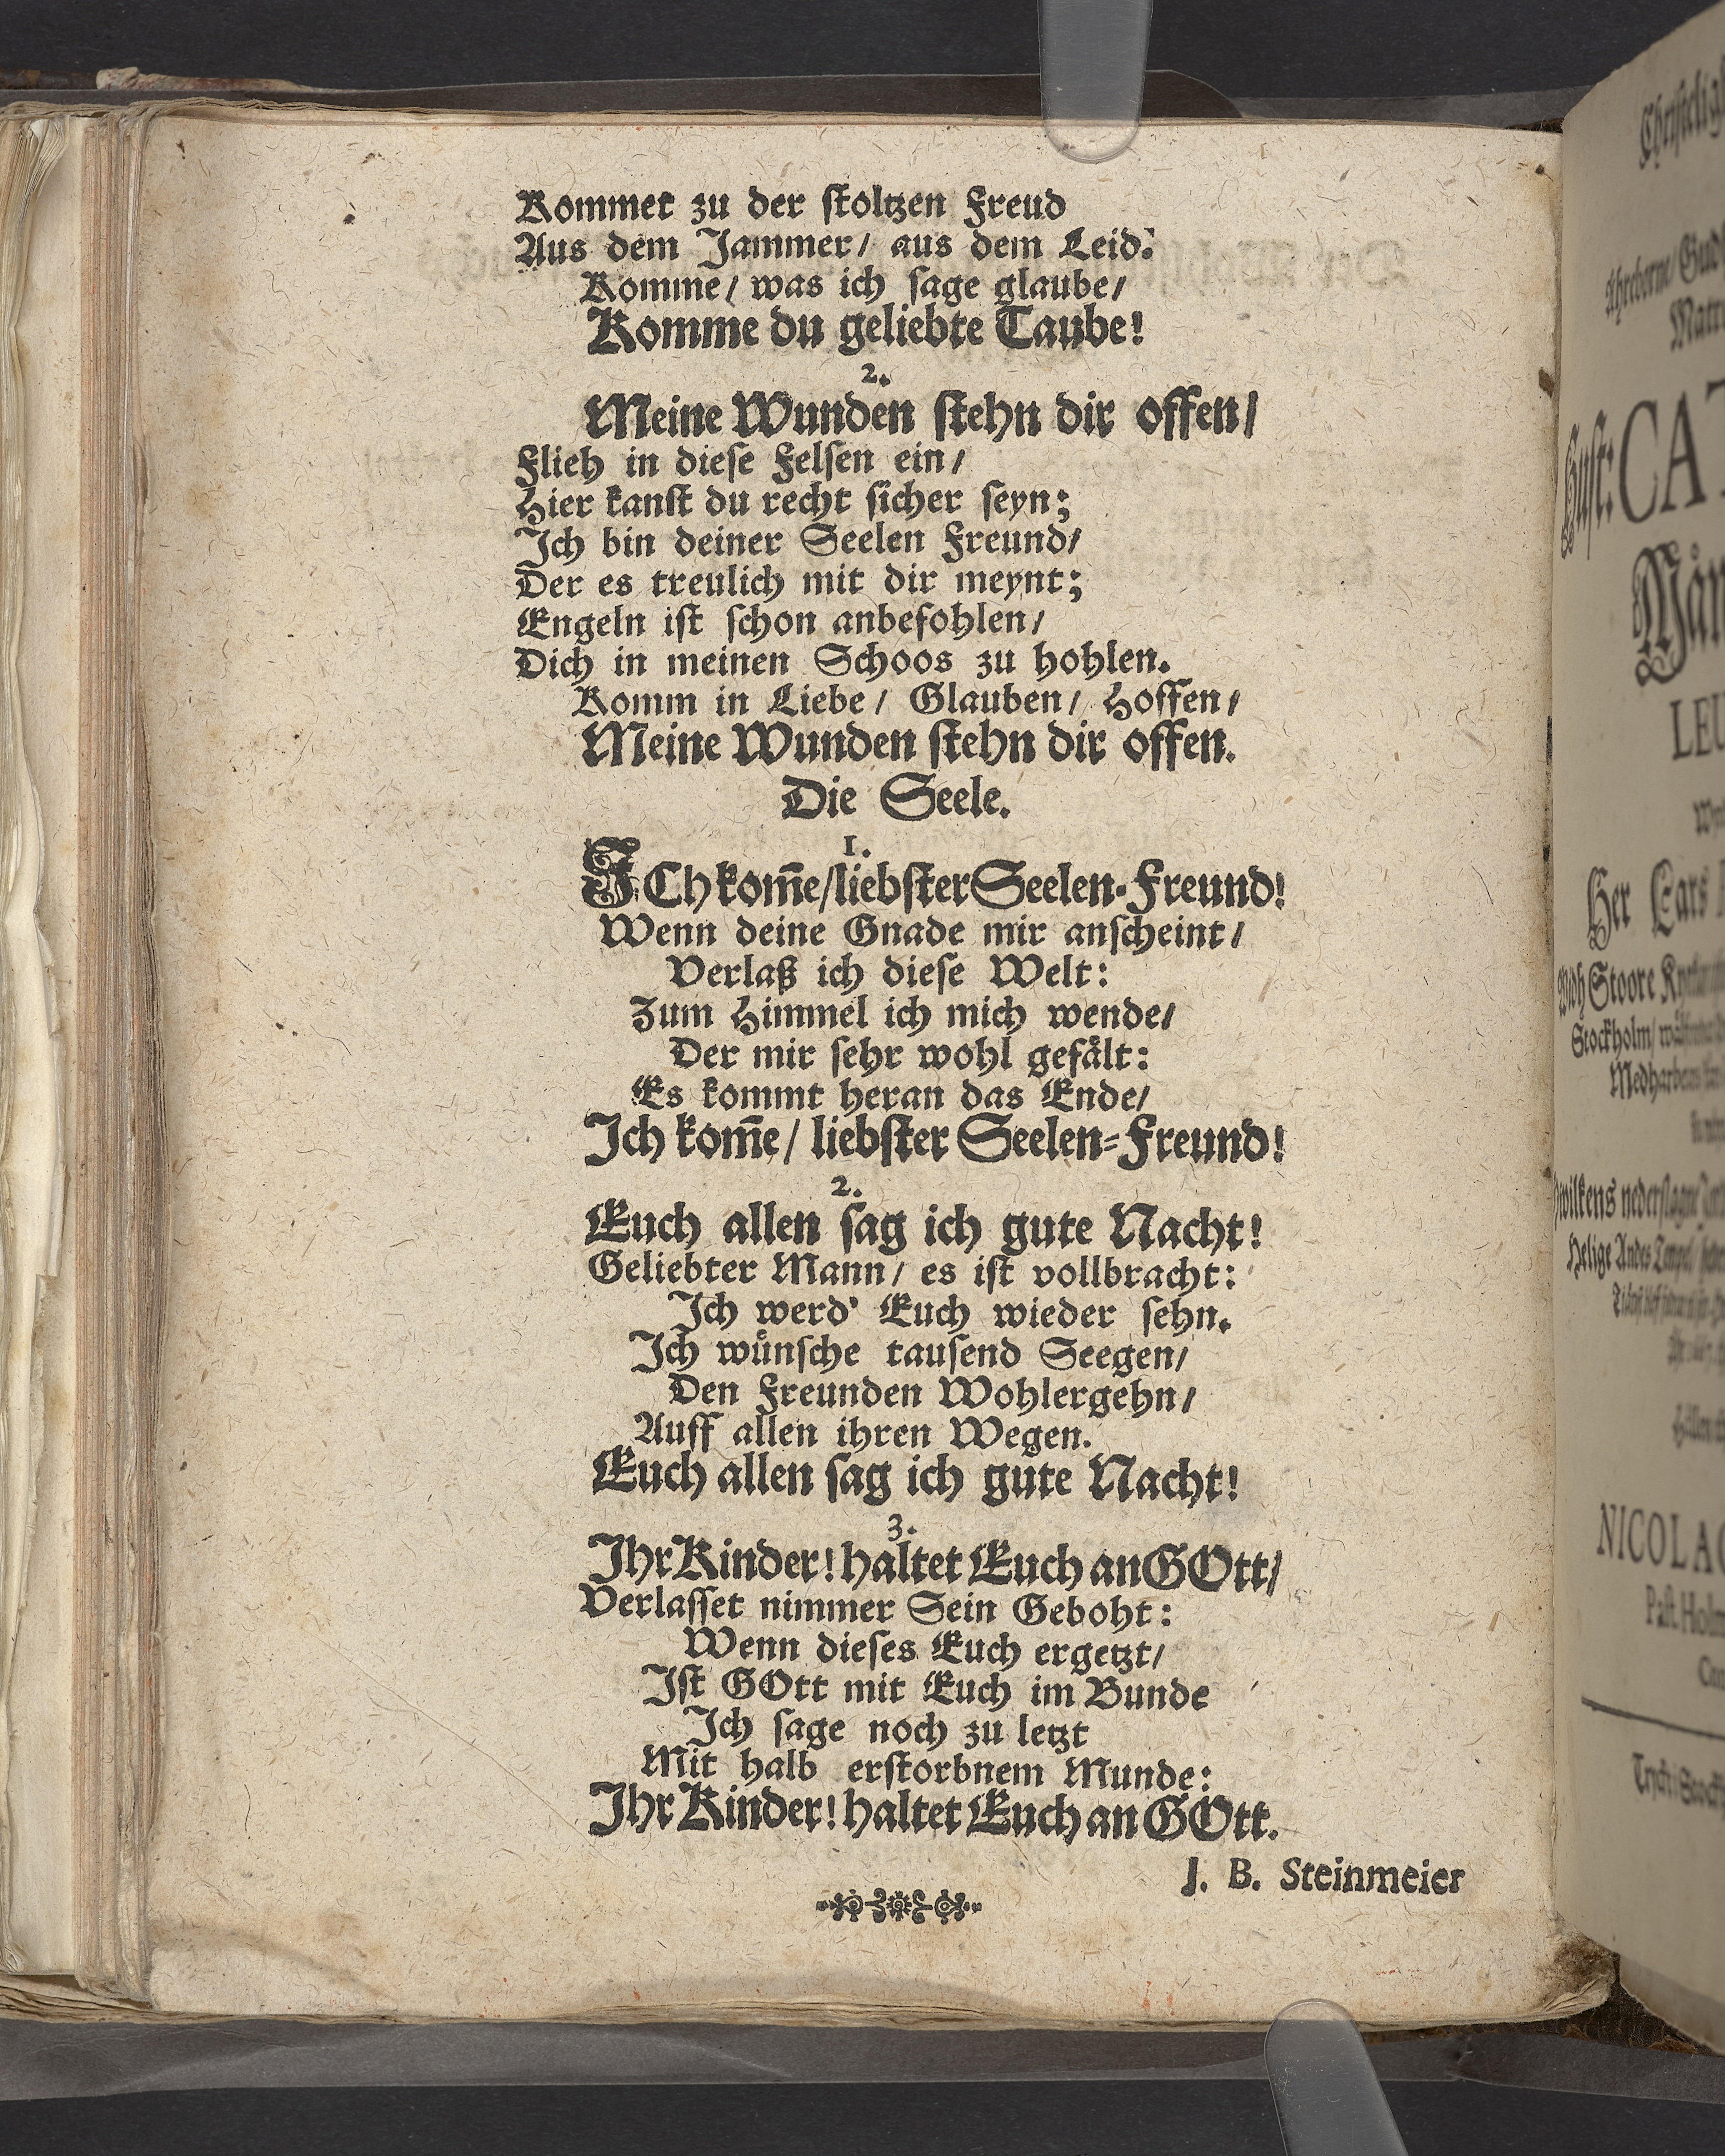 Kommet zu der ſtoltzen Freud
Aus dem Jammer/ aus dem Leid:
Komme/ was ich ſage glaube/
Komme du geliebte Taube!
2.
Meine Wunden ſtehn dir offen/
Flieh in dieſe Felſen ein/
Hier kanſt du recht ſicher ſeyn;
Ich bin deiner Seelen Freund/
Der es treulich mit dir meynt;
Engeln iſt ſchon anbefohlen/
Dich in meinen Schoos zu hohlen.
Komm in Liebe/ Glauben/ Hoffen/
Meine Wunden ſtehn dir offen.
Die Seele.
1.
ICh kom̄e/liebſter Seelen-Freund!
Wenn deine Gnade mir anſcheint/
Verlaß ich dieſe Welt:
Zum Himmel ich mich wende/
Der mir ſehr wohl gefaͤlt:
Es kommt heran das Ende/
Ich kom̄e/ liebſter Seelen-Freund!
2.
Euch allen ſag ich gute Nacht!
Geliebter Mann/ es iſt vollbracht:
Ich werd' Euch wieder ſehn.
Ich wuͤnſche tauſend Seegen/
Den Freunden Wohlergehn/
Auff allen ihren Wegen.
Euch allen ſag ich gute Nacht!
3.
Ihr Kinder! haltet Euch an GOtt/
Verlaſſet nimmer Sein Geboht:
Wenn dieſes Euch ergetzt/
Iſt GOtt mit Euch im Bunde
Ich ſage noch zu letzt
Mit halb erſtorbnem Munde:
Ihr Kinder! haltet Euch an GOtt.
J. B. Steinmeier
Her Lars
Stoore
Stockholm/